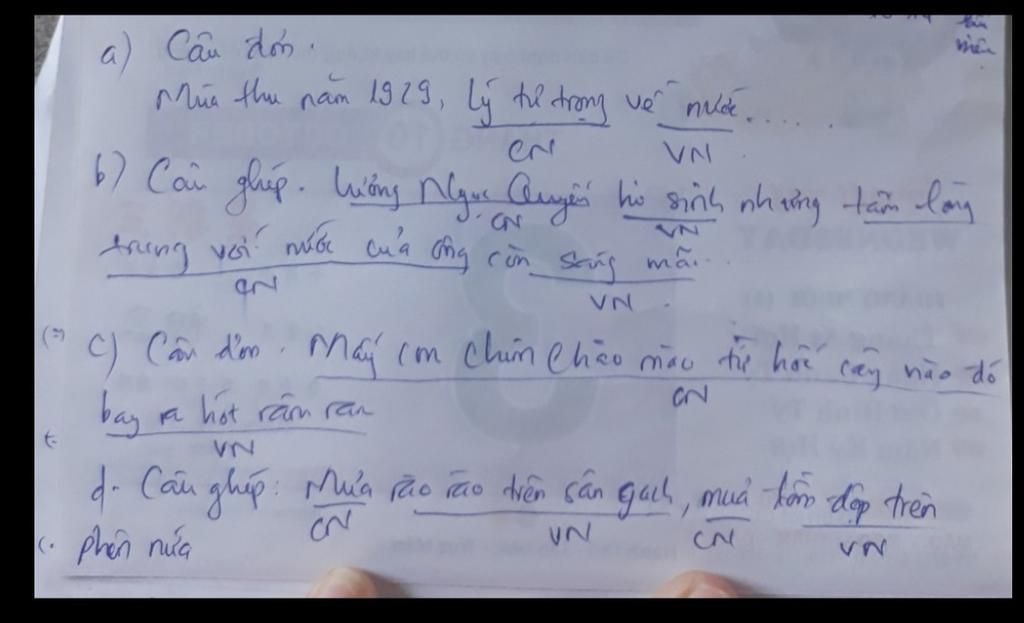 a) Câu đơn.
Mùa thu năm 1929, Lý tự trọng về nước.....
CN VN
b) Câu ghép. Lương Ngọc Quyến hi sinh nhưng tấm lòng
CN VN
trung với nước của ông còn sáng mãi..
CN VN
c) Câu đơn. Mấy con chim chào mào từ hốc cây nào đó
CN
bay ra hót râm ran
VN
d. Câu ghép: Mưa rào rào trên sân gạch, mưa đồm độp trên
CN VN CN VN
phên nứa